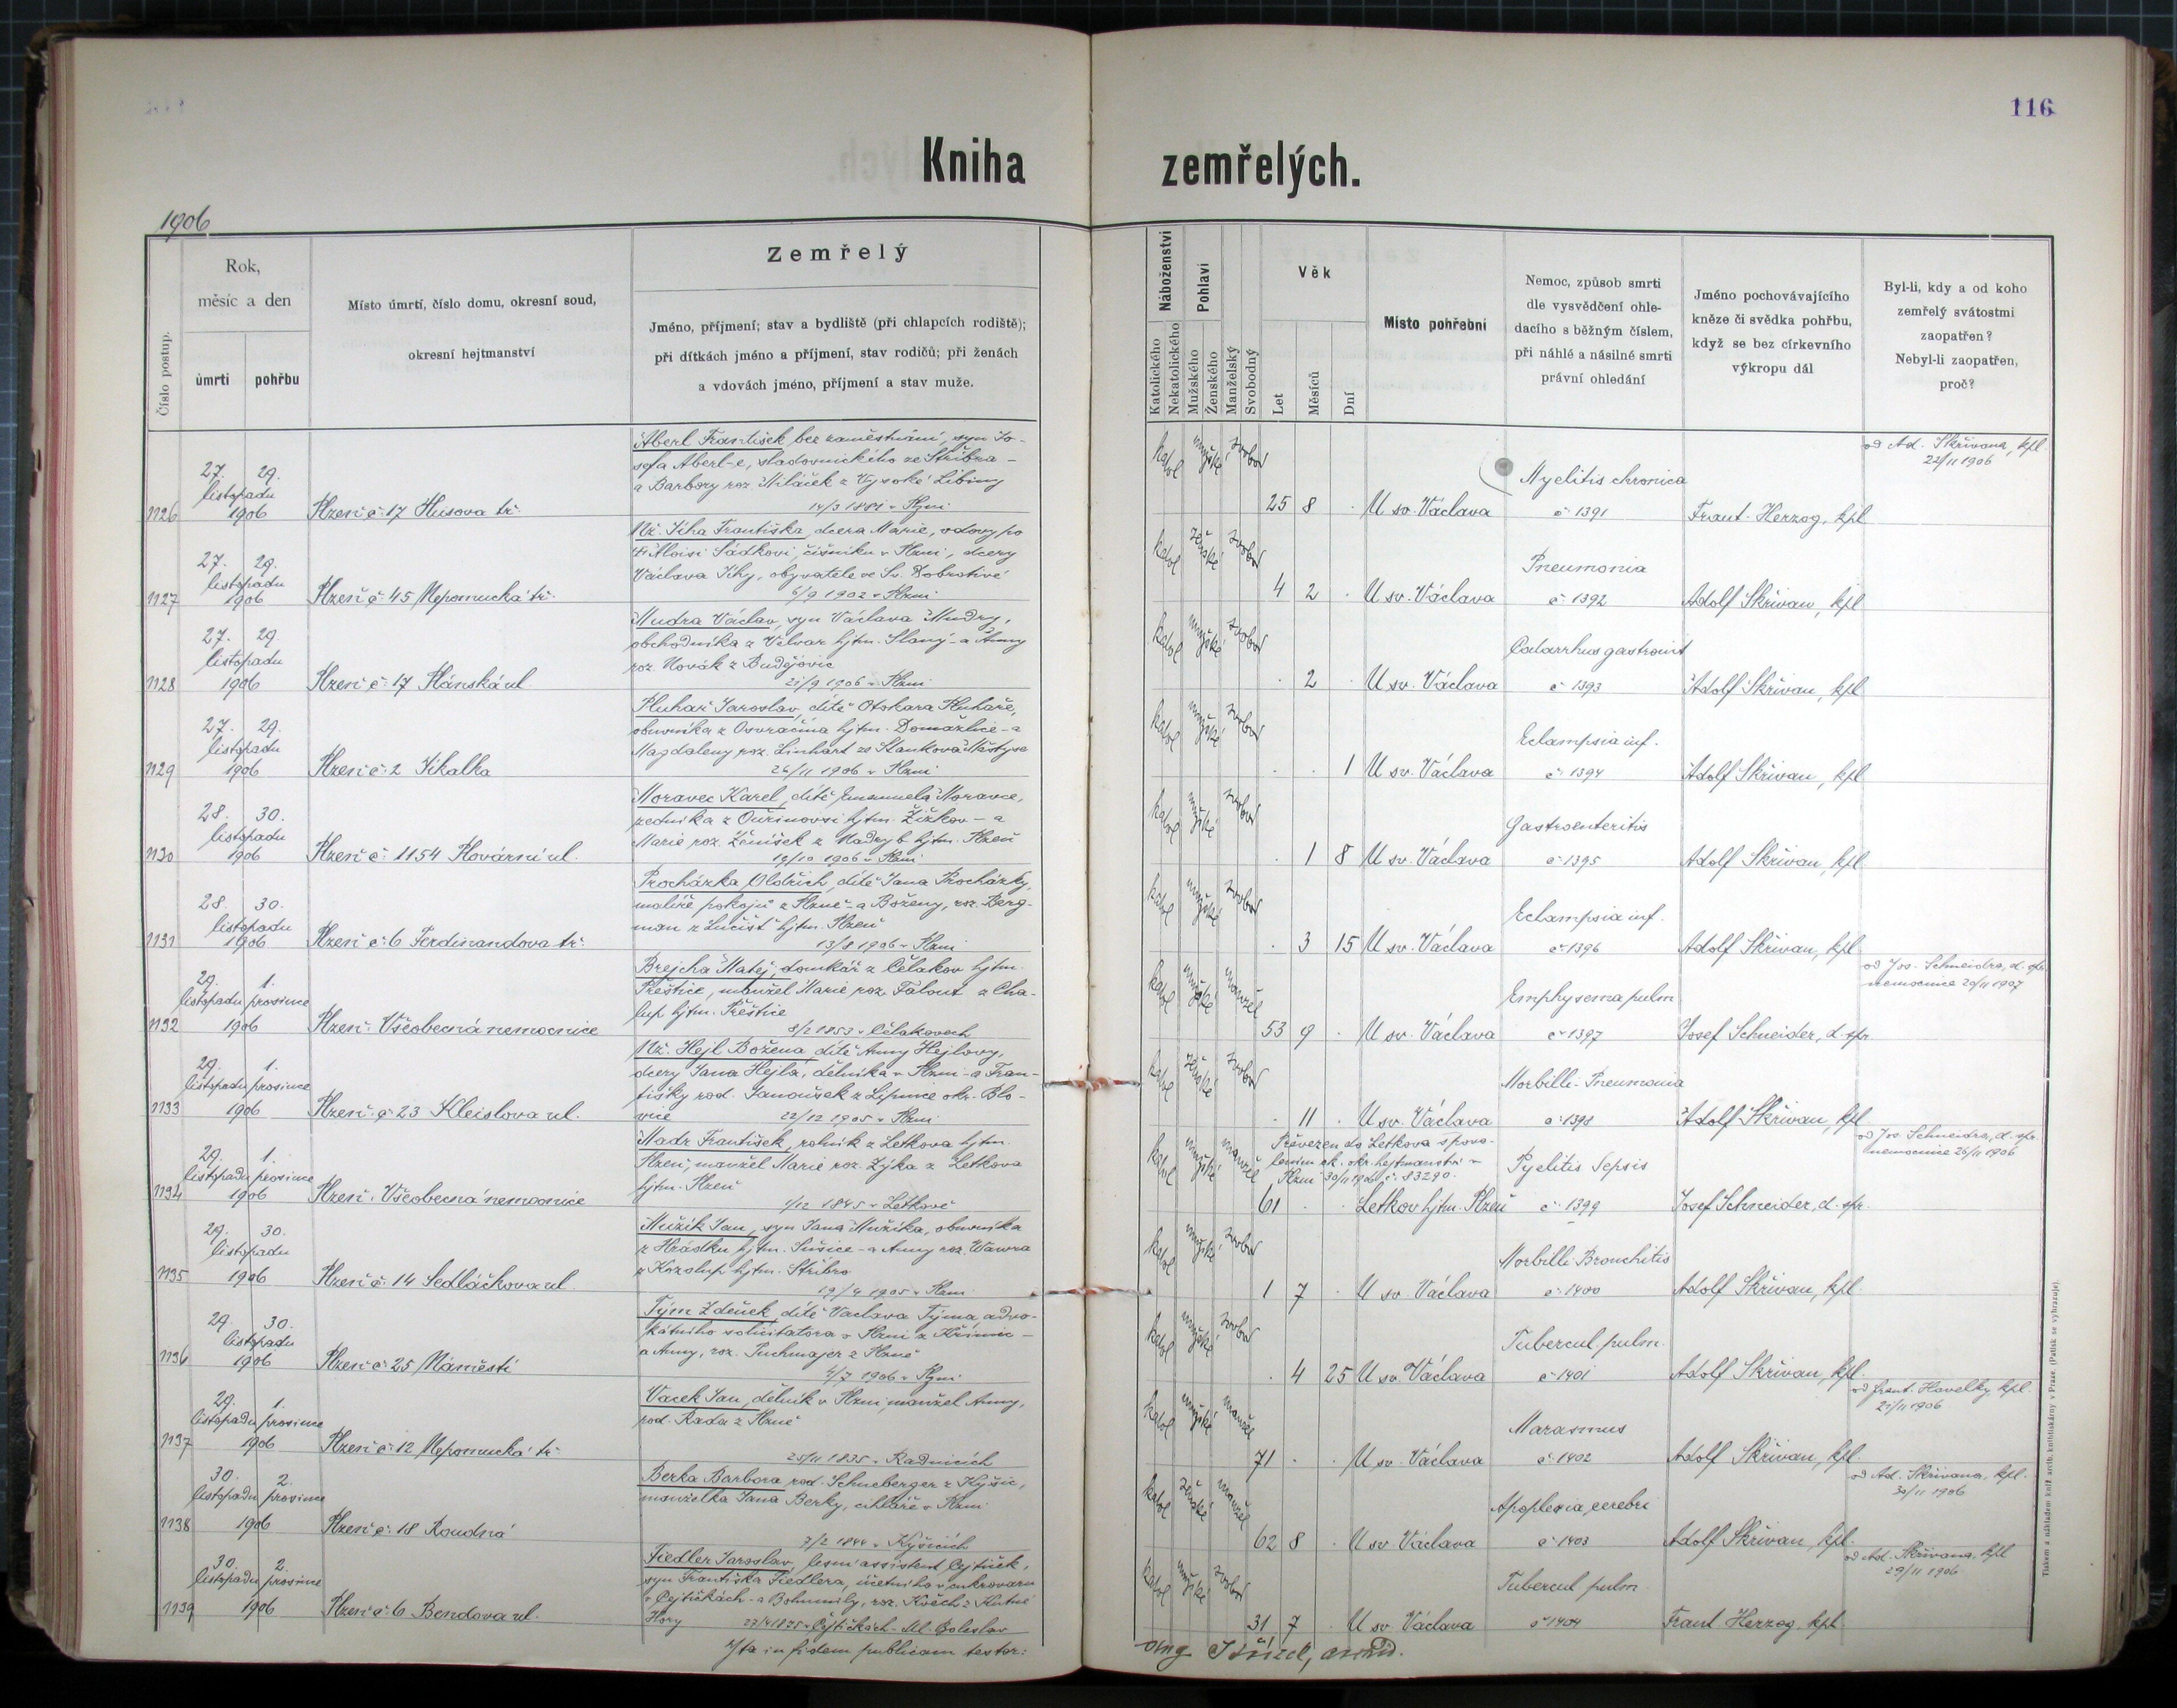 116
Kniha zemřelých.
1906
Číslo postup.
Rok,
měsíc a den
úmrtí
pohřbu
Místo úmrtí, číslo domu, okresní soud,
okresní hejtmanství
Zemřelý
Jméno, příjmení; stav a bydliště (při chlapcích rodiště);
při dítkách jméno a příjmení, stav rodičů; při ženách
a vdovách jméno, příjmení a stav muže.
Náboženství
Katolického
Nekatolického
Pohlaví
Mužského
Ženského
Manželský
Svobodný
Věk
Let
Měsíců
Dní
Místo pohřební
Nemoc, způsob smrti
dle vysvědčení ohle-
dacího s běžným číslem,
při náhlé a násilné smrti
právní ohledání
Jméno pochovávajícího
kněze či svědka pohřbu,
když se bez církevního
výkropu dál
Byl-li, kdy a od koho
zemřelý svátostmi
zaopatřen?
Nebyl-li zaopatřen,
proč?
1126
27. 29.
listopadu
1906
Plzeň č: 17 Husova tř.
Aberl František, bez zaměstnání, syn Jo-
sefa Aberl-e, sladovnického ze Stříbra -
a Barbory roz. Miláček z Vysoké Libiny
14/3 1881 v Plzni
katol mužské svobod
25 8 U sv. Václava
Myelitis chronica
č 1391
Frant. Herzog, kpl
od Ad. Skřivana, kpl.
22/11 1906
1127
27. 29.
listopadu
1906
Plzeň č: 45 Nepomucká tř.
Nž. Jíha Františka, dcera Marie, vdovy po
Aloisi Sádkovi, číšníku v Plzni, dcery
Václava Jíhy, obyvatele ve Sv. Dobrotivé
6/9 1902 v Plzni
katol ženské svobod
4 2 U sv. Václava
Pneumonia
č 1392
Adolf Skřivan, kpl
1128
27. 29.
listopadu
1906
Plzeň č: 17 Plánská ul.
Mudra Václav, syn Václava Mudry,
obchodníka z Velvar hjtm. Slaný - a Anny
roz. Novák z Budějovic
21/9 1906 v Plzni
katol mužské svobod
2 U sv. Václava
Catarrhus gastroint
č 1393
Adolf Skřivan, kpl
1129
27. 29.
listopadu
1906
Plzeň č: 2 Jikalka
Pluhař Jaroslav, dítě Otokara Pluhaře,
obuvníka z Osvračína hjtm. Domažlice - a
Magdaleny roz. Linhart ze Stankova Městyse
26/11 1906 v Plzni
katol mužské svobod
1 U sv. Václava
Eclampsia inf.
č 1394
Adolf Skřivan, kpl
1130
28. 30.
listopadu
1906
Plzeň č: 1154 Plovární ul.
Moravec Karel, dítě Emanuela Moravce,
zedníka z Ouřinovsi hjtm. Žižkov - a
Marie roz. Ženíšek z Nadryb hjtm. Plzeň
19/10 1906 v Plzni
katol mužské svobod
1 8 U sv. Václava
Gastroenteritis
č 1395
Adolf Skřivan, kpl
1131
28. 30.
listopadu
1906
Plzeň č: 6 Ferdinandova tř.
Procházka Oldřich, dítě Jana Procházky,
malíře pokojů z Plzně - a Boženy, roz. Berg-
man z Lučišť hjtm. Plzeň
13/8 1906 v Plzni
katol mužské svobod
3 15 U sv. Václava
Eclampsia inf.
č 1396
Adolf Skřivan, kpl
1132
29. 1.
listopadu prosince
1906
Plzeň: Všeobecná nemocnice
Brejcha Matěj, domkář z Čelakov hjtm.
Přeštice, manžel Marie roz. Falout z Cha-
lup hjtm. Přeštice
8/2 1853 v Čelakovech
katol mužské manžel
53 9 U sv. Václava
Emphysema pulm
č 1397
Josef Schneider, d. spr
od Jos. Schneidra, d. spr.
nemocnice 20/11 1907
1133
29. 1.
listopadu prosince
1906
Plzeň: č 23 Kleislova ul.
Nž. Hejl Božena, dítě Anny Hejlovy,
dcery Jana Hejla, dělníka v Plzni - a Fran-
tišky rod. Janoušek z Lipnice okr. Blo-
vice 22/12 1905 v Plzni
katol ženské svobod
11 U sv. Václava
Morbilli - Pneumonia
č 1398
Adolf Skřivan, kpl
1134
29. 1.
listopadu prosince
1906
Plzeň: Všeobecná nemocnice
Madr František, rolník z Letkova hjtm.
Plzeň, manžel Marie roz. Zýka z Letkova
hjtm. Plzeň
1/12 1845 v Letkově
katol mužské manžel
Převezen do Letkova s povo-
lením ck. okr. hejtmanství v
Plzni 30/11 1906 č. 83290.
61 Letkov hjtm. Plzeň
Pyelitis Sepsis
č 1399
Josef Schneider, d. spr.
od Jos. Schneidra, d. spr.
nemocnice 26/11 1906
1135
29. 30.
listopadu
1906
Plzeň č: 14 Sedláčkova ul.
Mužík Jan, syn Jana Mužíka, obuvníka
z Hrádku hjtm. Sušice - a Anny roz. Wawra
z Kozolup hjtm. Stříbro
19/4 1905 v Plzni
katol mužské svobod
1 7 U sv. Václava
Morbilli Bronchitis
č 1400
Adolf Skřivan, kpl.
1136
29. 30.
listopadu
1906
Plzeň č: 25 Náměstí
Tým Zdeněk, dítě Václava Týma, advo-
kátního solicitatora v Plzni z Křimic -
a Anny, roz. Puchmajer z Plzně
4/7 1906 v Plzni
katol mužské svobod
4 25 U sv. Václava
Tubercul. pulm.
č 1401
Adolf Skřivan, kpl.
1137
29. 1.
listopadu prosince
1906
Plzeň č: 12 Nepomucká tř.
Vacek Jan, dělník v Plzni, manžel Anny,
rod. Rada z Plzně
25/11 1835 v Radnicích
katol mužské manžel
71 U sv. Václava
Marasmus
č. 1402
Adolf Skřivan, kpl.
od Frant. Havelky, kpl.
21/11 1906
1138
30. 2.
listopadu prosince
1906
Plzeň č: 18 Roudná
Berka Barbora, rod. Schneberger z Kyšic,
manželka Jana Berky, cihláře v Plzni
7/2 1844 v Kyšicích
katol ženské manžel
62 8 U sv Václava
Apoplexia cerebri
č 1403
Adolf Skřivan, kpl.
od Ad. Skřivana, kpl.
30/11 1906
1139
30. 2.
listopadu prosince
1906
Plzeň č: 6 Bendova ul.
Fiedler Jaroslav, lesní assistent Čejtiček,
syn Františka Fiedlera, účetního v cukrovaru
v Čejtičkách - a Bohumily, roz. Kvěch z Kutné
Hory 27/4 1875 v Čejtičkách - Ml. Boleslav
katol mužské svobod
31 7 U sv Václava
Tubercul pulm.
č 1404
Frant Herzog, kpl.
od Ad. Skřivana, kpl
29/11 1906
Ita in fidem publicam testor:
Tiskem a nákladem kníž. arcib. knihtiskárny v Praze. (Patisk se vyhrazuje).